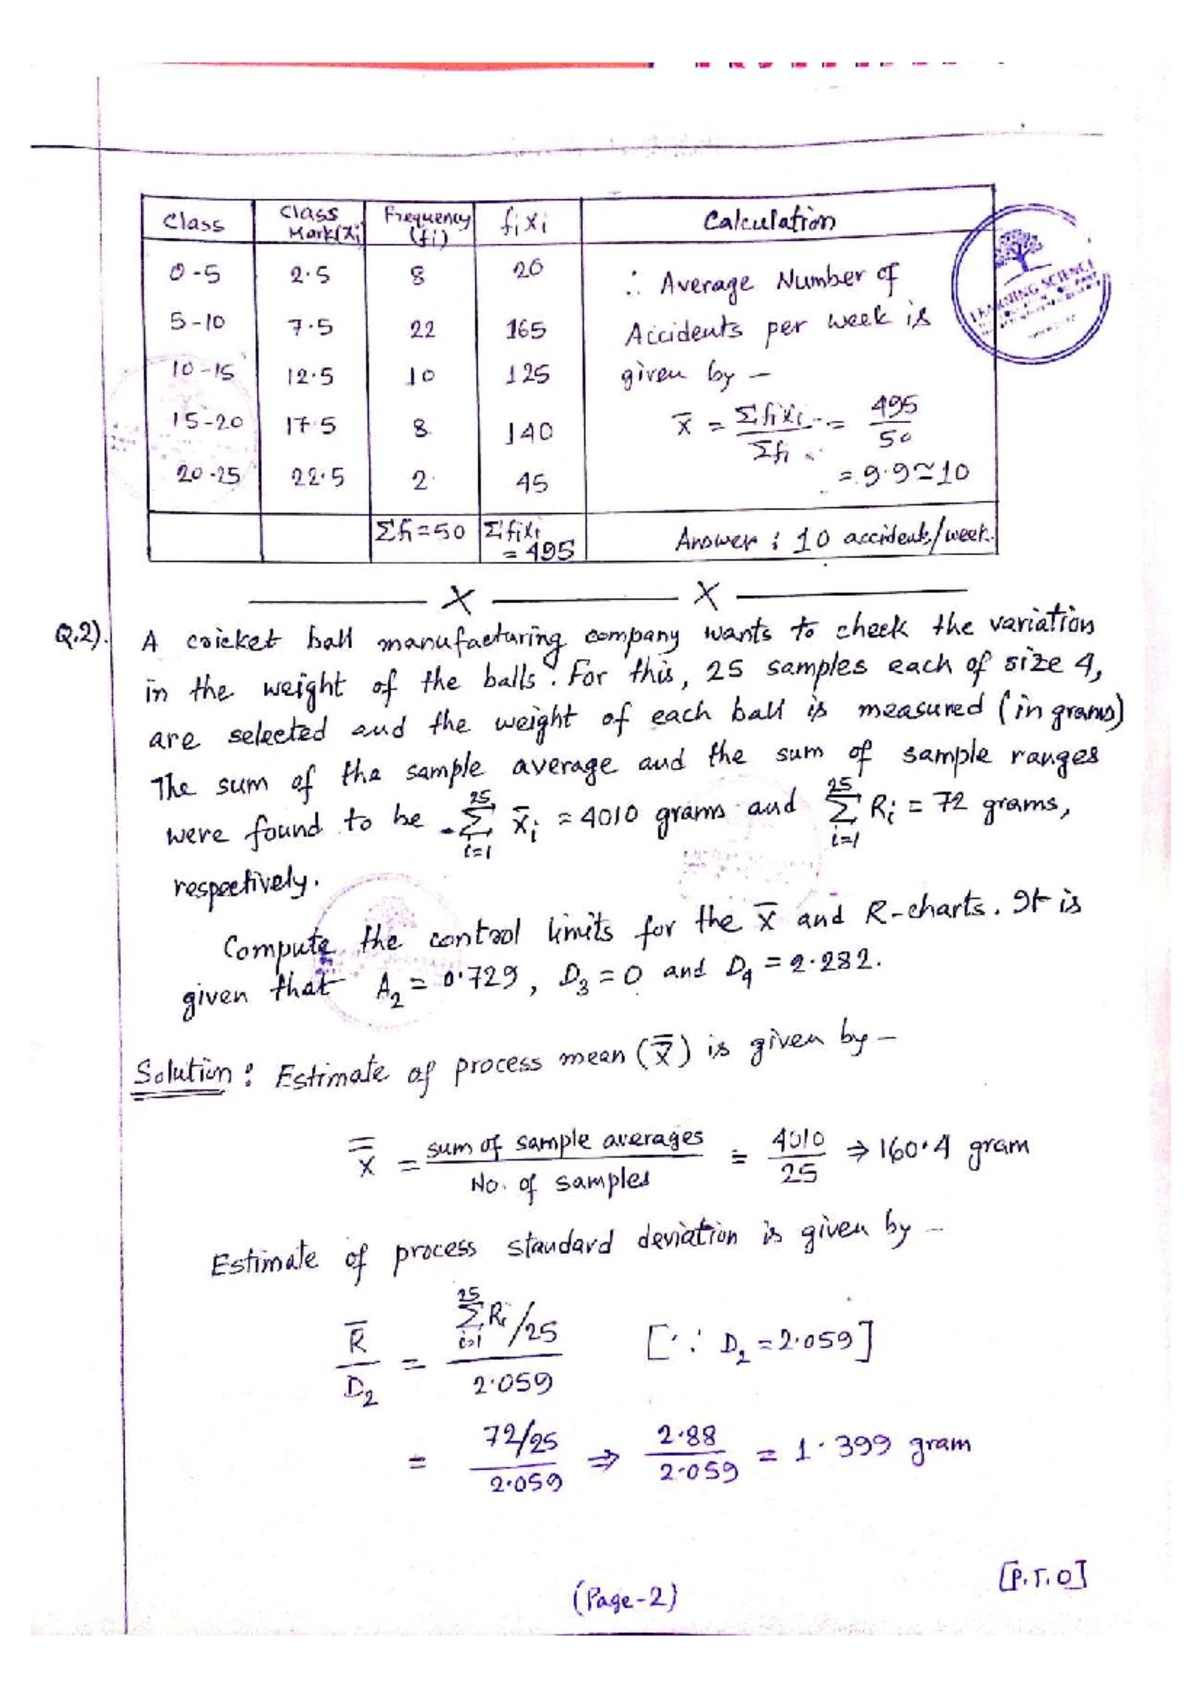 Class | Class Mark(xi) | Frequency (fi) | fixi | Calculation
0-5 | 2.5 | 8 | 20 | ∴ Average Number of
5-10 | 7.5 | 22 | 165 | Accidents per week is
10-15 | 12.5 | 10 | 125 | given by –
15-20 | 17.5 | 8 | 140 | x̄ = Σfixi / Σfi = 495/50
20-25 | 22.5 | 2 | 45 | = 9.9 ≃ 10
Σfi = 50 | Σfixi = 495 | Answer : 10 accidents/week.
LEARNING SCIENCE
X X
Q.2). A cricket ball manufacturing company wants to check the variation
in the weight of the balls. For this, 25 samples each of size 4,
are selected and the weight of each ball is measured (in grams)
The sum of the sample average and the sum of sample ranges
were found to be Σ(i=1 to 25) x̄i = 4010 grams and Σ(i=1 to 25) Ri = 72 grams,
respectively.
Compute the control limits for the x̄ and R-charts. It is
given that A₂ = 0.729, D₃ = 0 and D₄ = 2.282.
Solution : Estimate of process mean (x̿) is given by –
x̿ = sum of sample averages / No. of samples = 4010/25 ⇒ 160.4 gram
Estimate of process standard deviation is given by –
R̄/D₂ = (Σ(i=1 to 25) Ri/25) / 2.059 [∵ D₂ = 2.059]
= (72/25) / 2.059 ⇒ 2.88/2.059 = 1.399 gram
[P.T.O]
(Page-2)